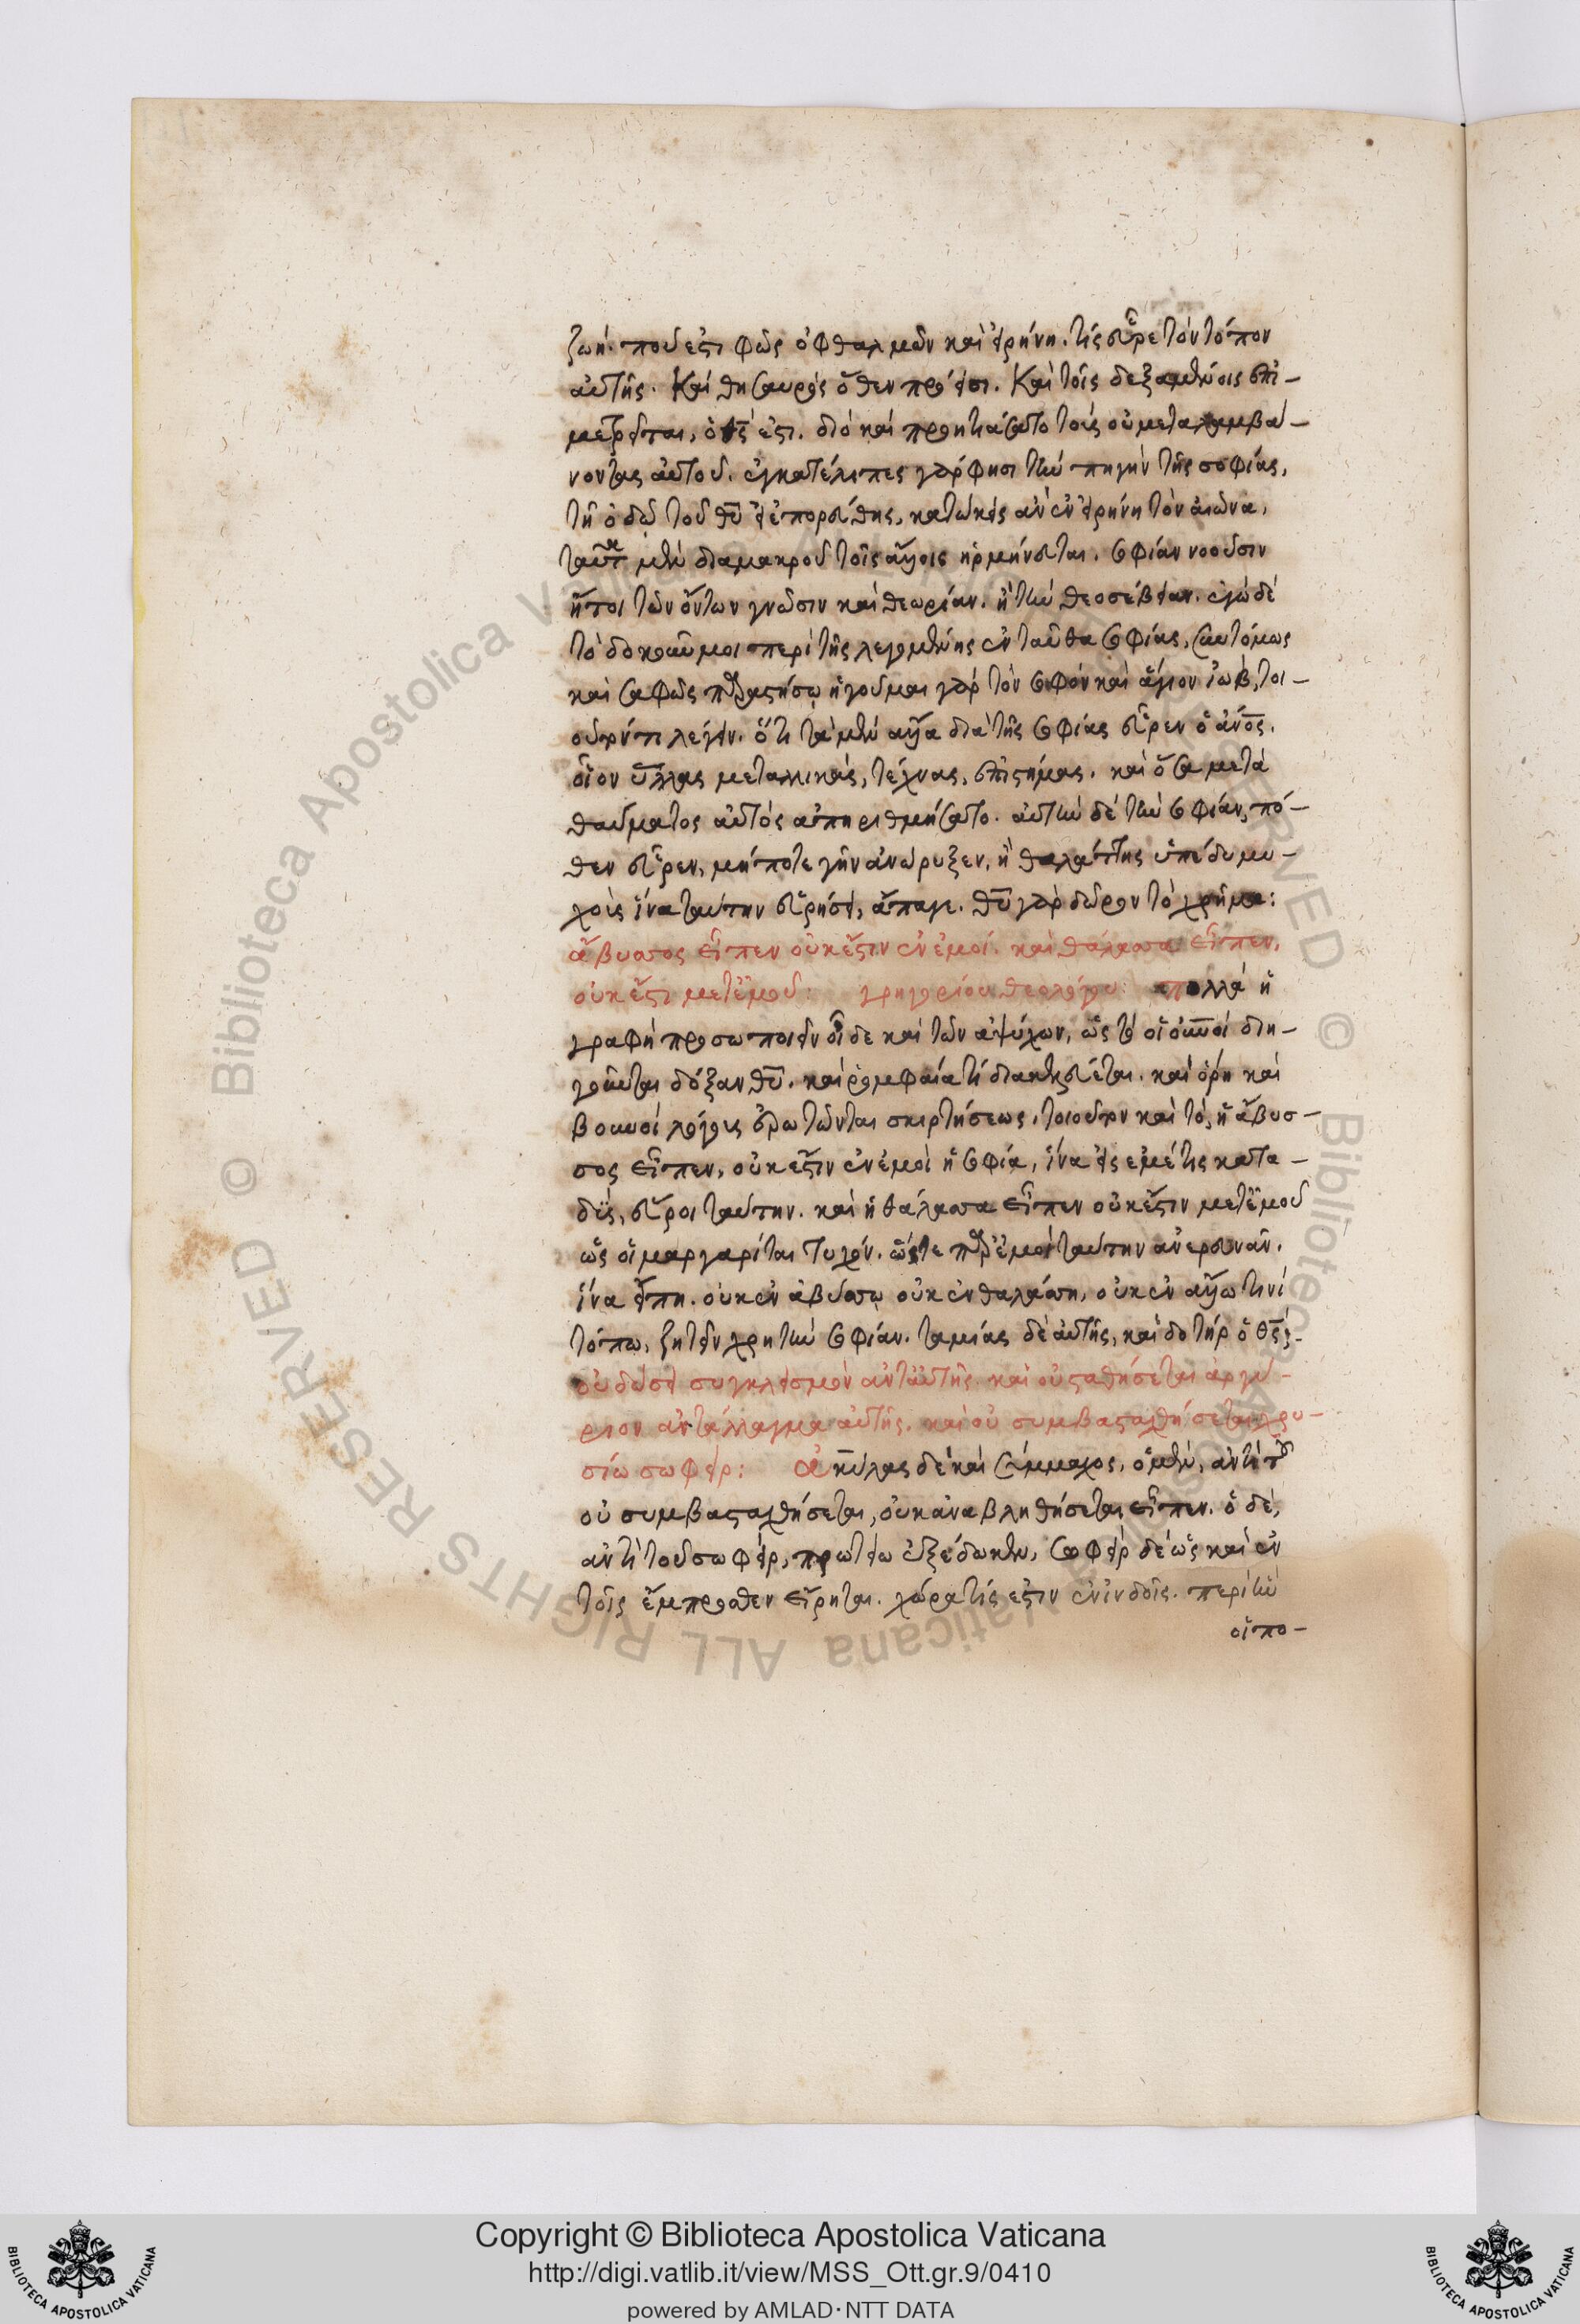 ζωή. ποῦ ἐστι φῶς ὀφθαλμῶν καὶ εἰρήνη. τίς εὗρε τὸν τόπον
αὐτῆς. Καὶ θησαυρὸς ὅθεν πρόεισι. Καὶ τοῖς δεξαμένοις ἐπι-
μετρεῖται, ὁ θς ἐστι. διὸ καὶ προητιάσατο τοὺς οὐ μεταλαμβά-
νοντας αὐτοῦ. ἐγκατέλιπες γάρ φησι τὴν πηγὴν τῆς σοφίας,
τῇ ὁδῷ τοῦ θυ εἰ ἐπορεύθης, κατῴκεις ἂν ἐν εἰρήνῃ τὸν αἰῶνα,
ταῦτα μὲν διαμακροῦ τοῖς ἄλλοις ἡρμήνευται. σοφίαν νοοῦσιν
ἤτοι τῶν ὄντων γνῶσιν καὶ θεωρίαν. ἢ τὴν θεοσέβειαν. ἐγὼ δὲ
τὸ δοκοῦν μοι περὶ τῆς λεγομένης ἐνταῦθα σοφίας, συντόμως
καὶ σαφῶς παραστήσω ἡγοῦμαι γὰρ τὸν σοφὸν καὶ ἅγιον ἰώβ, τοι-
οῦτόν τι λέγειν. ὅτι τὰ μὲν ἄλλα διὰ τῆς σοφίας εὗρεν ὁ ἀνος.
οἷον ὕλας μεταλλικάς, τέχνας, ἐπιστήμας. καὶ ὅσα μετὰ
θαύματος αὐτὸς ἀπηριθμήσατο. αὐτὴν δὲ τὴν σοφίαν, πό-
θεν εὗρεν, μήποτε γῆν ἀνώρυξεν, ἢ θαλάττης ὑπέδυ μυ-
χοὺς ἵνα ταύτην εὑρήσει, ἄπαγε. θυ γὰρ δῶρον τὸ χρῆμα:
ἄβυσσος εἶπεν οὐκ ἔστιν ἐν ἐμοί. καὶ θάλασσα εἶπεν,
οὐκ ἔστι μετ' ἐμοῦ: γρηγορίου θεολόγου: πολλὰ ἡ
γραφὴ προσωποιεῖν οἶδε καὶ τῶν ἀψύχων, ὡς τὸ οἱ οὐνοὶ διη-
γοῦνται δόξαν θυ. καὶ ῥομφαία τὶ διακελεύεται. καὶ ὄρη καὶ
βουνοὶ λόγους ἐρωτῶνται σκιρτήσεως. τοιοῦτον καὶ τὸ, ἡ ἄβυσ-
σος εἶπεν, οὐκ ἔστιν ἐν ἐμοὶ ἡ σοφία, ἵνα εἰς ἐμέ τις κατα-
δύς, εὕροι ταύτην. καὶ ἡ θάλασσα εἶπεν οὐκ ἔστιν μετ' ἐμοῦ
ὡς οἱ μαργαρῖται τυχόν. ὥστε παρ' ἐμοὶ ταύτην ἀνερευνᾶν.
ἵνα εἴπῃ. οὐκ ἐν ἀβύσσῳ οὐκ ἐν θαλάσσῃ, οὐκ ἐν ἄλλω τινί
τόπω, ζητεῖν χρὴ τὴν σοφίαν. ταμίας δὲ αὐτῆς, καὶ δοτὴρ ὁ θς:-
οὐ δώσει συγκλεισμὸν ἀντ' αὐτῆς. καὶ οὐ σταθήσεται ἀργύ-
ριον ἀντάλλαγμα αὐτῆς. καὶ οὐ συμβασταχθήσεται χρυ-
σίω σωφείρ: ἀκύλας δὲ καὶ σύμμαχος, ὁ μὲν, ἀντὶ τοῦ
οὐ συμβασταχθήσεται, οὐκ ἀναβληθήσεται εἶπεν. ὁ δὲ,
ἀντὶ τοῦ σωφείρ, πρωτείω ἐξέδωκεν, σωφεὶρ δὲ ὡς καὶ ἐν
τοῖς ἔμπροσθεν εἴρηται. χώρα τίς ἐστιν ἐν ἰνδοῖς. περὶ ἣν
οἱ πο-
Copyright © Biblioteca Apostolica Vaticana
http://digi.vatlib.it/view/MSS_Ott.gr.9/0410
powered by AMLAD·NTT DATA
BIBLIOTECA APOSTOLICA VATICANA
BIBLIOTECA APOSTOLICA VATICANA